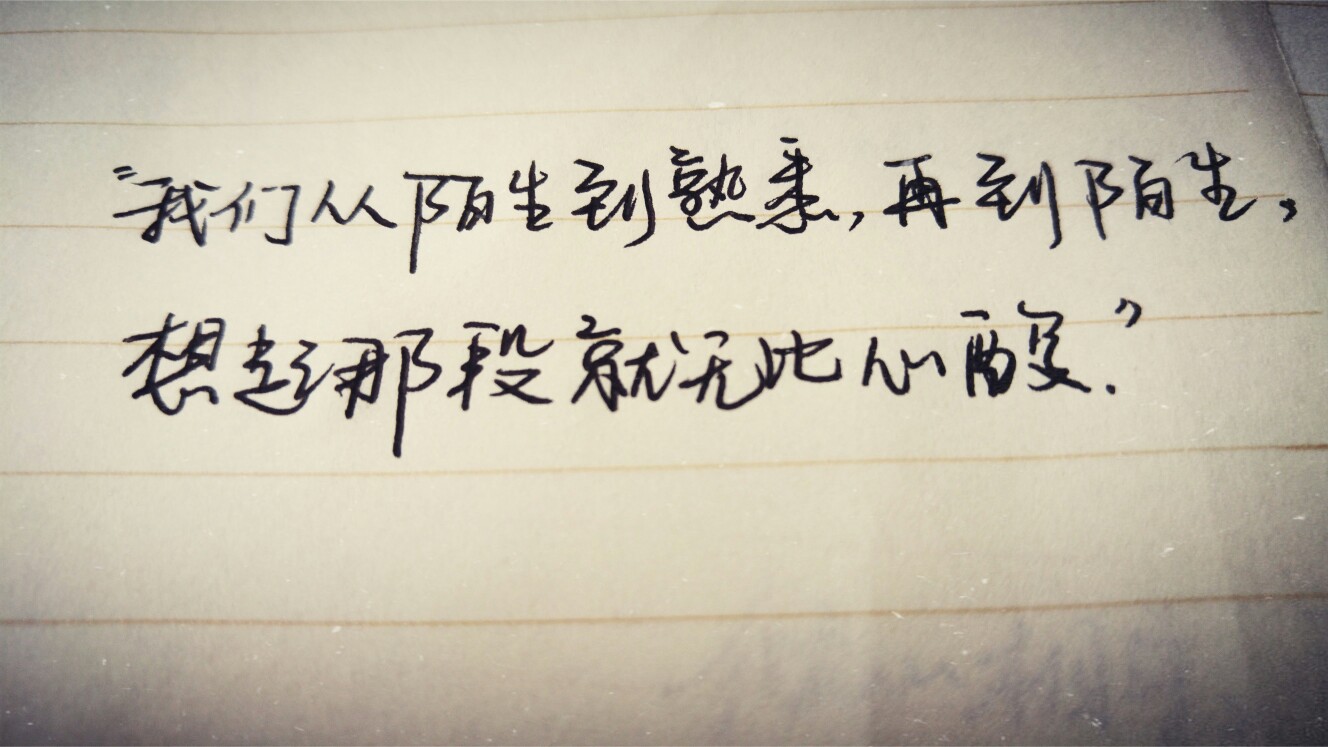 “我们从陌生到熟悉，再到陌生，
想起那段就无比心酸.”